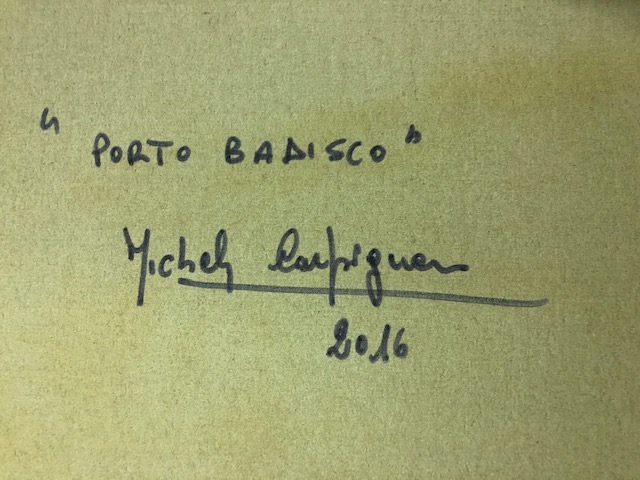 "PORTO BADISCO"
Michele Carpignano
2016